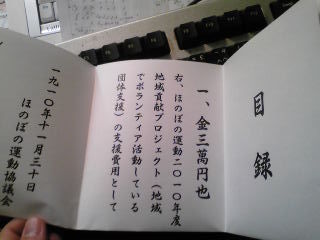 目録
一、金三萬円也
右、ほのぼの運動二〇一〇年度
地域貢献プロジェクト（地域
でボランティア活動している
団体支援）の支援費用として
一九一〇年十一月三十日
ほのぼの運動協議会